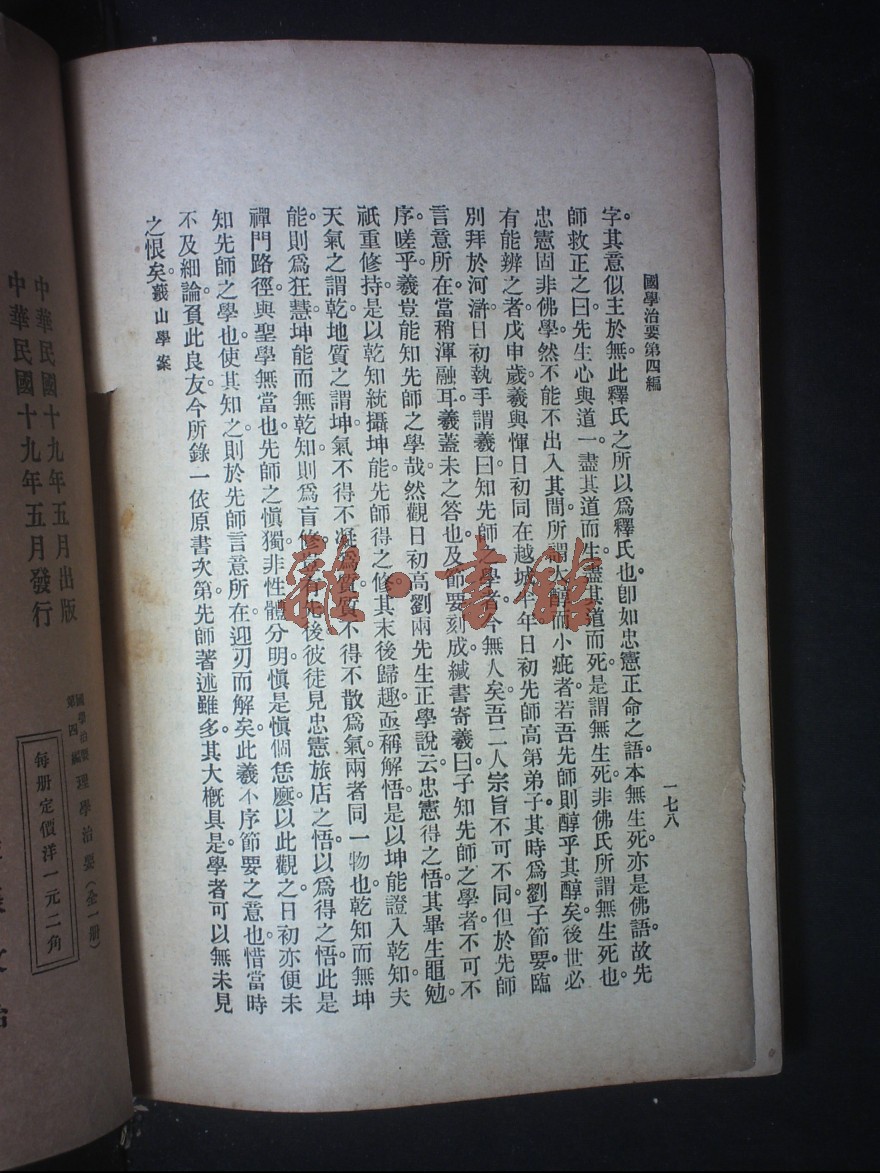 國學治要第四編
一七八
字。其意似主於無此釋氏之所以爲釋氏也卽如忠憲正命之語。本無生死亦是佛語故先
師救正之曰先生心與道一。盡其道而生盡其道而死是謂無生死非佛氏所謂無生死也。
忠憲固非佛學然不能不出入其間所謂大醇而小疵者若吾先師則醇乎其醇矣。後世必
有能辨之者。戊申歲羲與惲日初同在越城半年日初先師高第弟子。其時爲劉子節要臨
別拜於河滸日初執手謂羲曰知先師之學者。今無人矣。吾二人宗旨不可不同。但於先師
言意所在。當稍渾融耳。羲蓋未之答也及節要刻成緘書寄羲曰子知先師之學者。不可不
序。嗟乎羲豈能知先師之學哉。然觀日初高劉兩先生正學說云忠憲得之悟其畢生黽勉。
祇重修持。是以乾知統攝坤能。先師得之修。其末後歸趣亟稱解悟是以坤能證入乾知夫
天氣之謂乾地質之謂坤。氣不得不凝爲質。質不得不散爲氣。兩者同一物也。乾知而無坤
能。則爲狂慧坤能而無乾知則爲盲修。豈有先後彼徒見忠憲旅店之悟以爲得之悟。此是
禪門路徑與聖學無當也。先師之愼獨非性體分明愼是愼個恁麽以此觀之日初亦便未
知先師之學也使其知之。則於先師言意所在迎刃而解矣。此羲不序節要之意也惜當時
不及細論負此良友。今所錄一依原書次第。先師著述雖多其大槪具是。學者可以無未見
之恨矣。蕺山學案
中華民國十九年五月出版
中華民國十九年五月發行
國學治要
第四編
理學治要(全一册)
每册定價洋一元二角